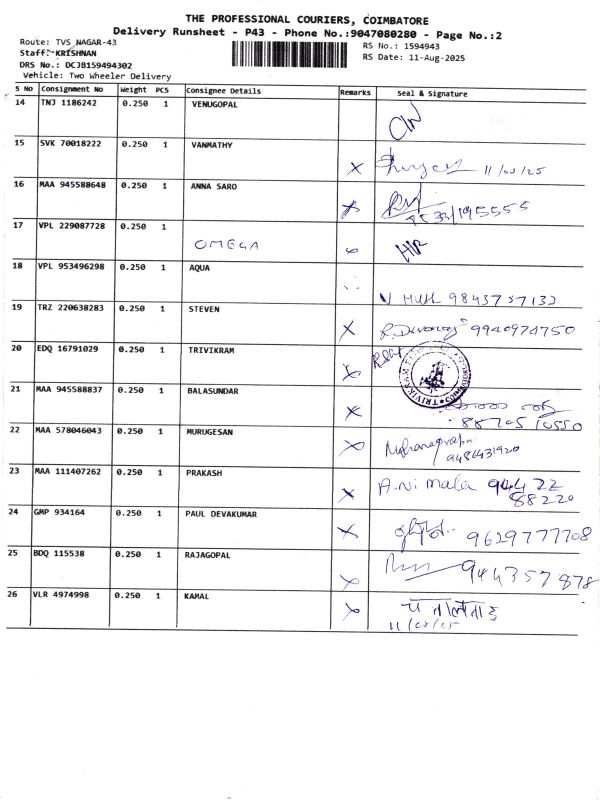 THE PROFESSIONAL COURIERS, COIMBATORE
Delivery Runsheet - P43 - Phone No.:9047080280 - Page No.:2
Route: TVS NAGAR-43 RS No.: 1594943
Staff: KRISHNAN RS Date: 11-Aug-2025
DRS No.: DCJB159494302
Vehicle: Two Wheeler Delivery
S No Consignment No Weight PCS Consignee Details Remarks Seal & Signature
14 TNJ 1186242 0.250 1 VENUGOPAL
15 SVK 70018222 0.250 1 VANMATHY 11/08/25
16 MAA 945588648 0.250 1 ANNA SARO
17 VPL 229087728 0.250 1 OMEGA
18 VPL 953496298 0.250 1 AQUA
19 TRZ 220638283 0.250 1 STEVEN 9940974750
20 EDQ 16791029 0.250 1 TRIVIKRAM
21 MAA 945588837 0.250 1 BALASUNDAR
22 MAA 578046043 0.250 1 MURUGESAN 9486431920
23 MAA 111407262 0.250 1 PRAKASH 94422
88220
24 GMP 934164 0.250 1 PAUL DEVAKUMAR 9629777708
25 BDQ 115538 0.250 1 RAJAGOPAL 9443357878
26 VLR 4974998 0.250 1 KAMAL
11/08/25